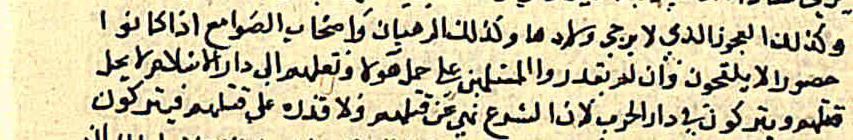 وكذلك العجوز الذي لا يرجى ولادها وكذلك الرهبان واصحاب الصوامع اذا كانوا
حضورا لا يلتحون فان لم يقدروا المسلمين على حمل هولا ونقلهم الى دار الاسلام لا يحل
قتلهم ويتركون في دار الحرب لان الشرع نهى عن قتلهم ولا قدره على قتلهم فيتركون